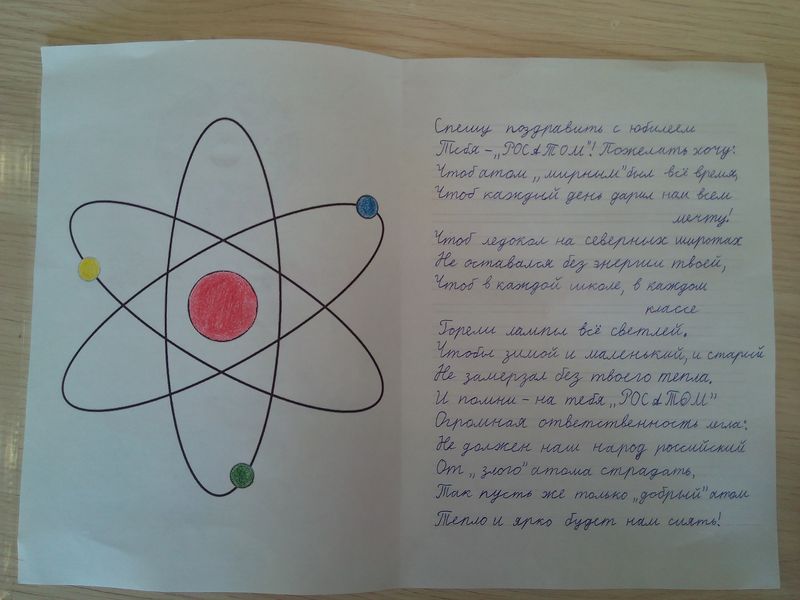 Спешу поздравить с юбилеем
Тебя – „РОСАТОМ"! Пожелать хочу:
Чтоб атом „мирным" был всё время,
Чтоб каждый день дарил нам всем
мечту!
Чтоб ледокол на северных широтах
Не оставался без энергии твоей,
Чтоб в каждой школе, в каждом
классе
Горели лампы всё светлей.
Чтобы зимой и маленький, и старый
Не замерзал без твоего тепла.
И помни – на тебя „РОСАТОМ"
Огромная ответственность легла:
Не должен наш народ российский
От „злого" атома страдать,
Так пусть же только „добрый" атом
Тепло и ярко будет нам сиять!